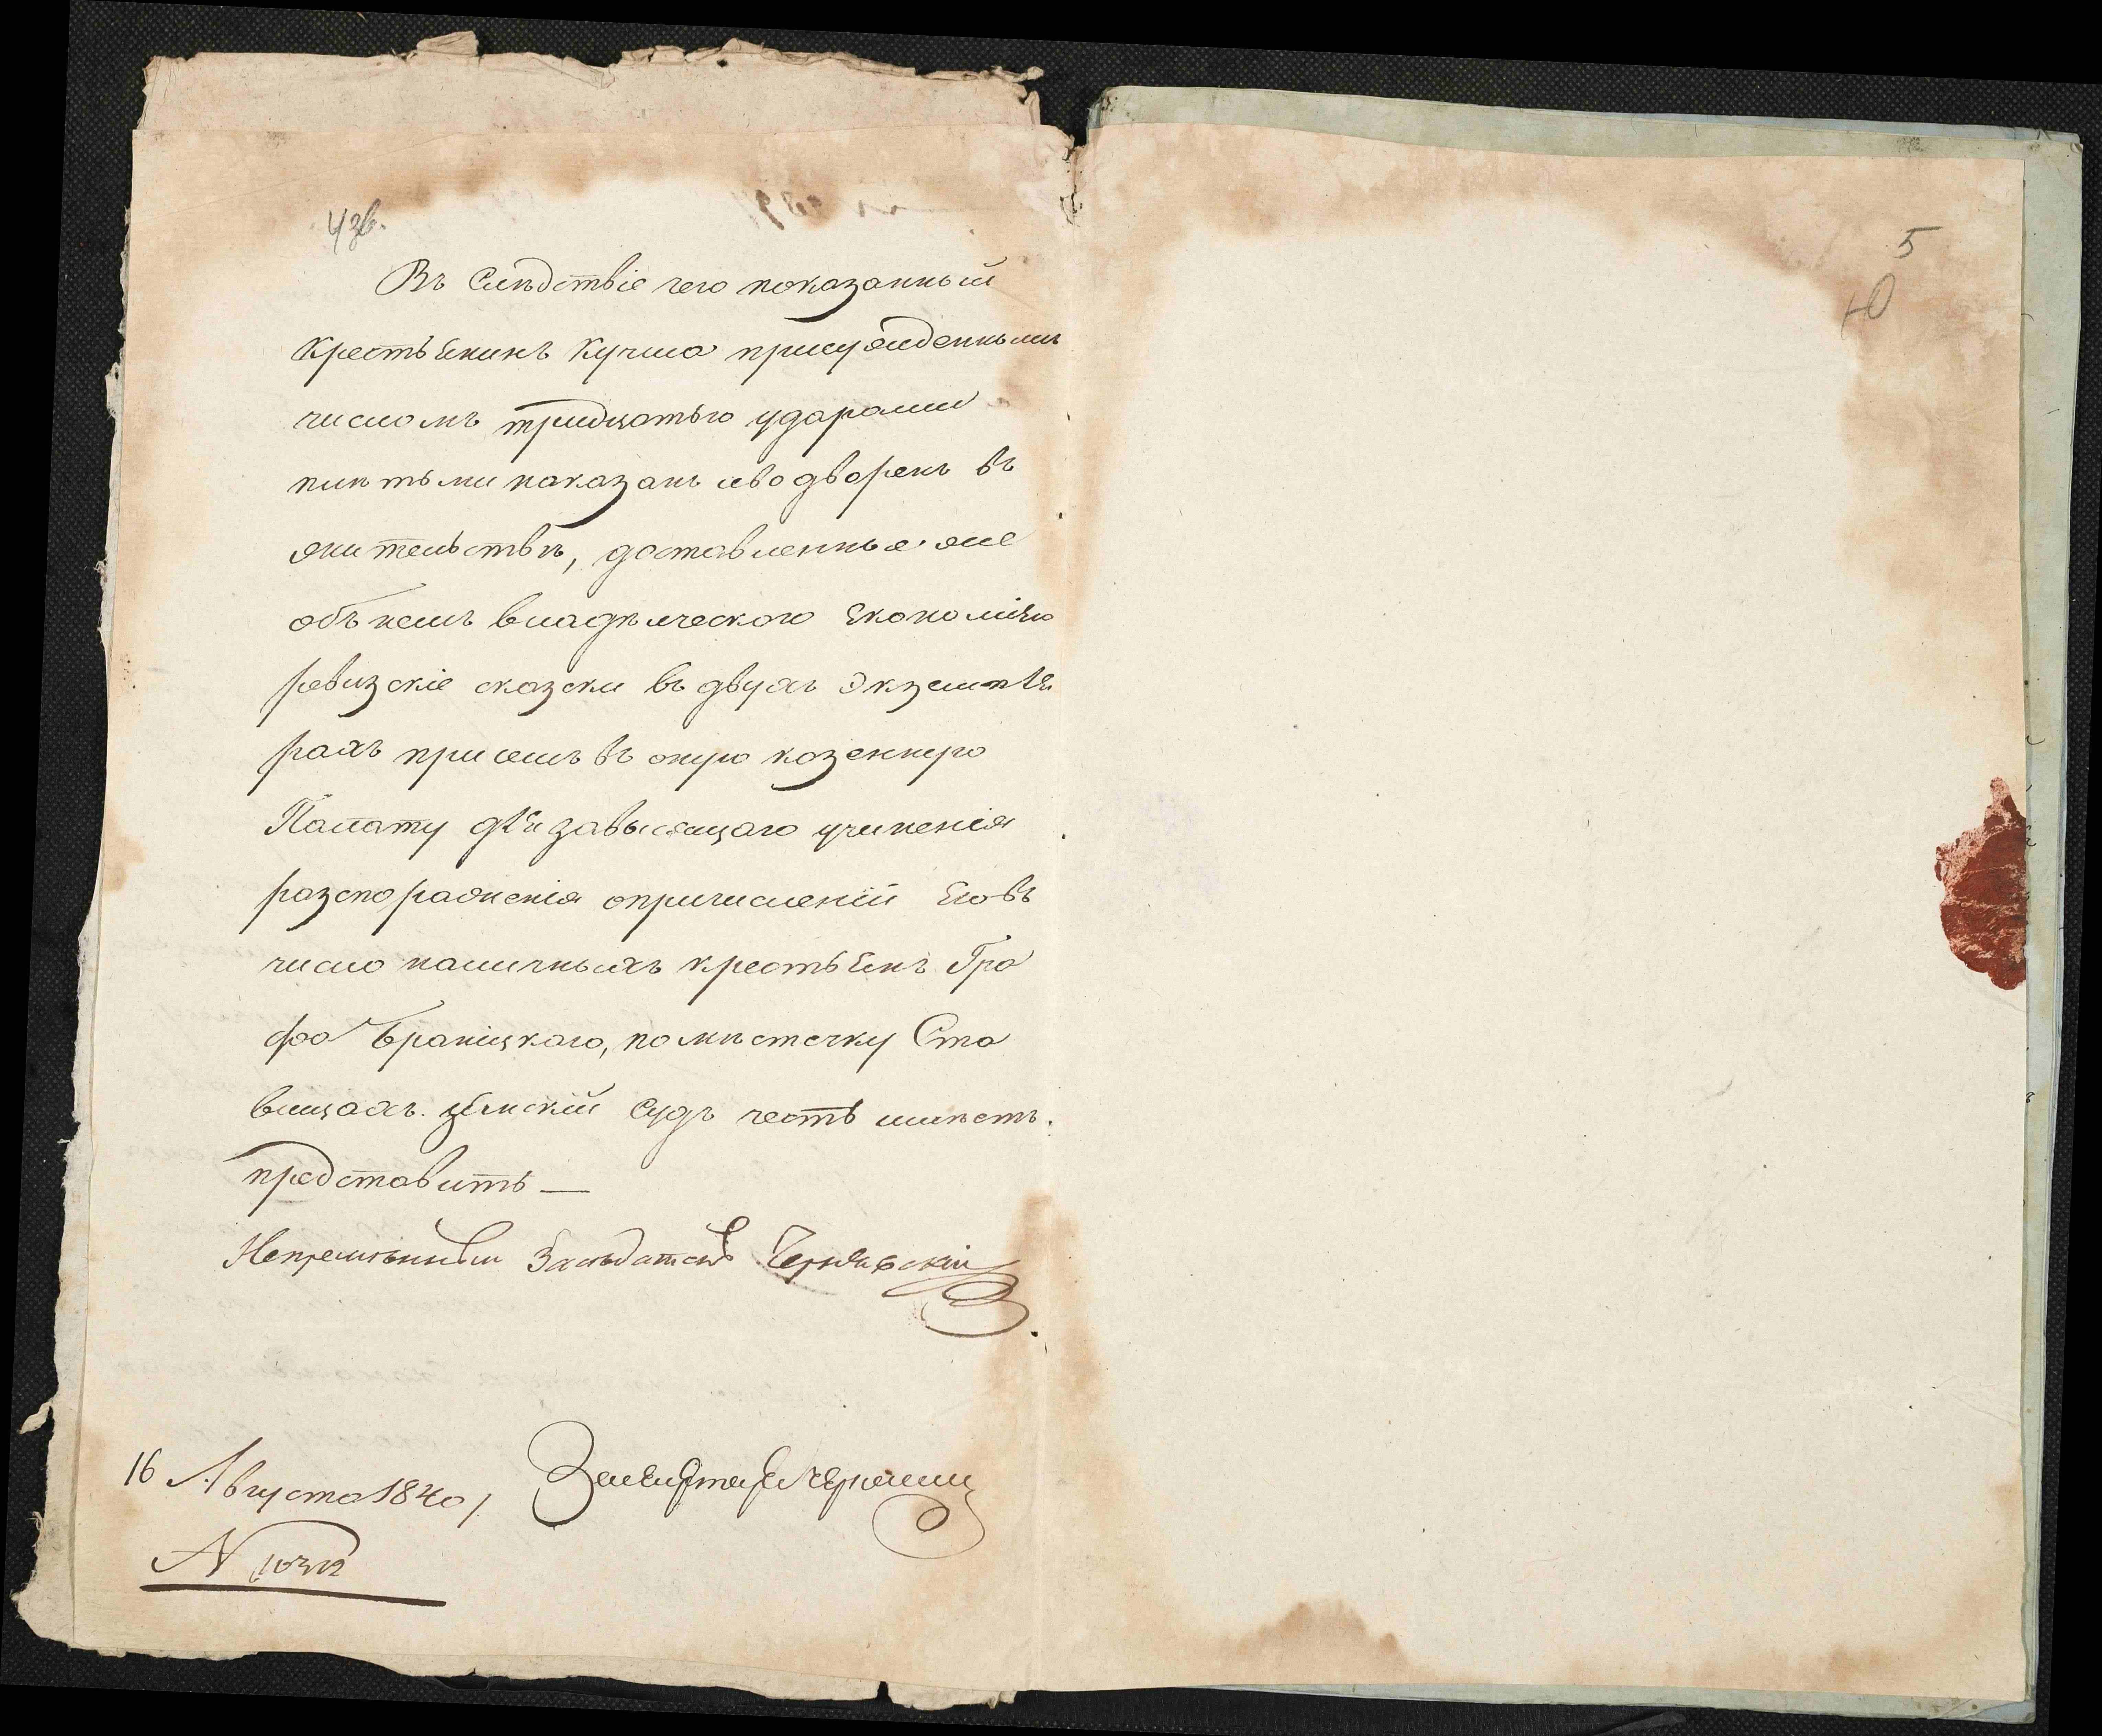 4зв.
Въ Слѣдствіе чего показанный
Крестьянинъ Кучма присужденнымъ
числомъ тридцатью ударами
плѣтьми наказанъ и водворенъ въ
жительствѣ, доставленныя же
объ немъ владѣлческого Економіею
ревизскіе сказски въ двухъ Экземпля
рахъ при семъ въ оную козенную
Палату для завысящаго учиненія
разспоряженія опричисленіи Еговъ
число наличныхъ крестьянъ Гра
фа Браніцкаго, по мѣстечку Ста
вищахъ. земскій Судъ честь имѣетъ
представить —
Непремѣнный Засѣдатель Чернявскій
16 Августа 1840 г.
N
5